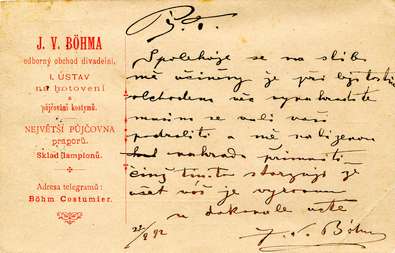 J. V. BÖHMA
odborný obchod divadelní,
I. ÚSTAV
na hotovení
a
půjčování kostymů.
NEJVĚTŠÍ PŮJČOVNA
praporů.
Sklad lampionů.
Adresa telegramů:
Böhm Costumier.
P. T.
Spoléhaje se na slib
mě učiněný že při
obchodem vás vynahradíte
musím se vaší vůli
podrobiti a mě nabízenou
náhradu přijmouti
čímž tímto stvrzuji že
účet váš je vyrovnán
v dokonalé úctě
J. V. Böhm